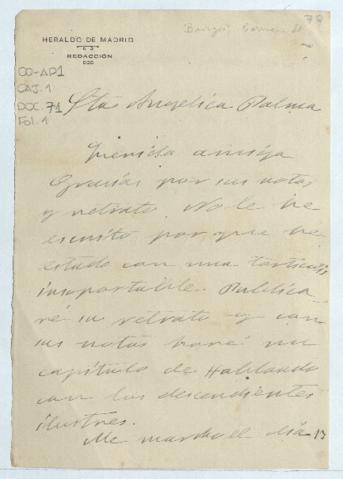 79
Burgos, Carmen de
HERALDO DE MADRID
REDACCIÓN
CO-AP1
CAJ. 1
DOC. 71
Fol. 1
Sta Angelica Palma
Querida amiga
Gracias por sus notas
y retrato. No le he
escrito por que he
estado con una
insoportable. Publica
ré su retrato y con
sus notas haré un
capitulo de Hablando
con los descendientes
ilustres.
Me marcho el dia 13